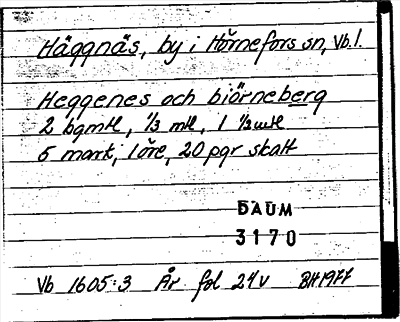 Häggnäs, by i Hörnefors sn, Vb. l.
Heggenes och biörneberg
2 bgmtl, 1/3 mtl, 1 1/2 mtl
6 mark, 1 öre, 20 pgr skatt
DAUM
3170
Vb 1605:3 År fol 24v BH 1977